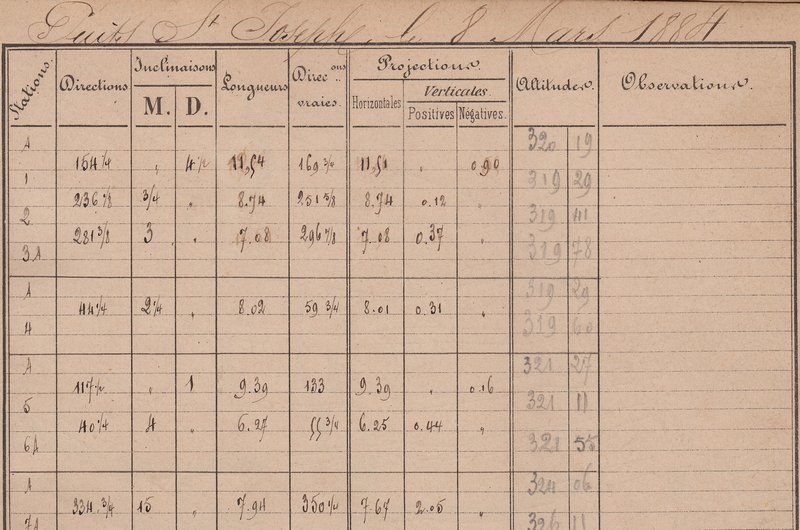 Puits St Joseph, le 8 Mars 1884
Stations. Directions Inclinaisons Longueurs Direc ons vraies. Projections. Altitudes. Observations.
M. D. Horizontales Verticales.
Positives Négatives.
A 320 19
154 1/4 „ 4 1/2 11,54 169 3/4 11,51 „ 0.90
1 319 29
236 7/8 3/4 „ 8.74 251 5/8 8.74 0.12 „
2 319 41
281 3/8 3 „ 7.08 296 7/8 7.08 0.37 „
3A 319 78
A 319 29
44 1/4 2 1/4 „ 8.02 59 3/4 8.01 0.31 „
4 319 60
A 321 27
117 1/2 „ 1 9.39 133 9.39 „ 0.16
5 321 11
40 1/4 4 „ 6.27 55 3/4 6.25 0.44 „
6A 321 55
A 324 06
334 3/4 15 „ 7.94 350 1/4 7.67 2.05 „
7A 326 11